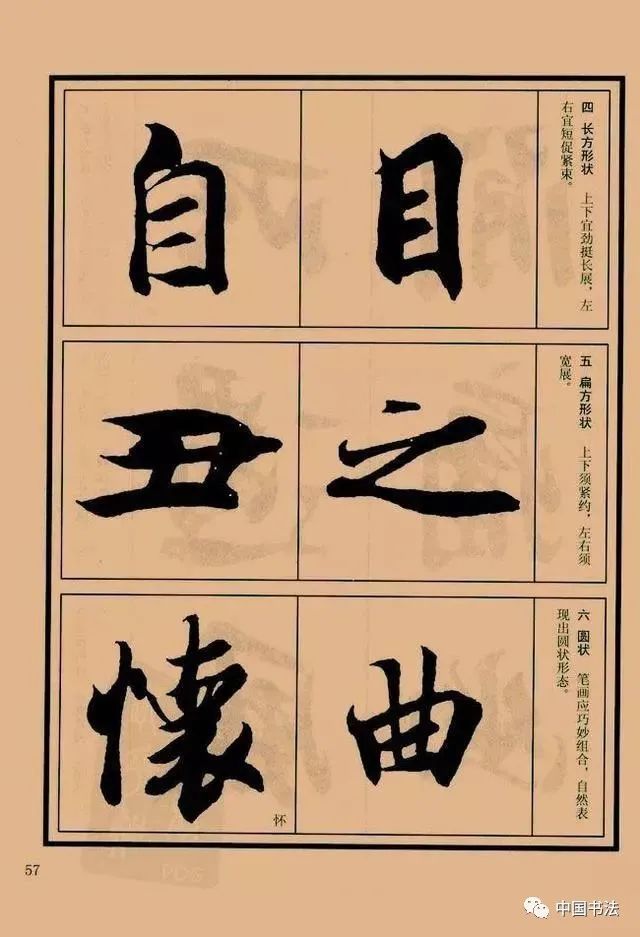 四 长方形状 上下宜劲挺长展，左
右宜短促紧束。
目
自
五 扁方形状 上下须紧约，左右须
宽展。
之
丑
六 圆状 笔画应巧妙组合，自然表
现出圆状形态。
曲
懷
怀
57
中国书法